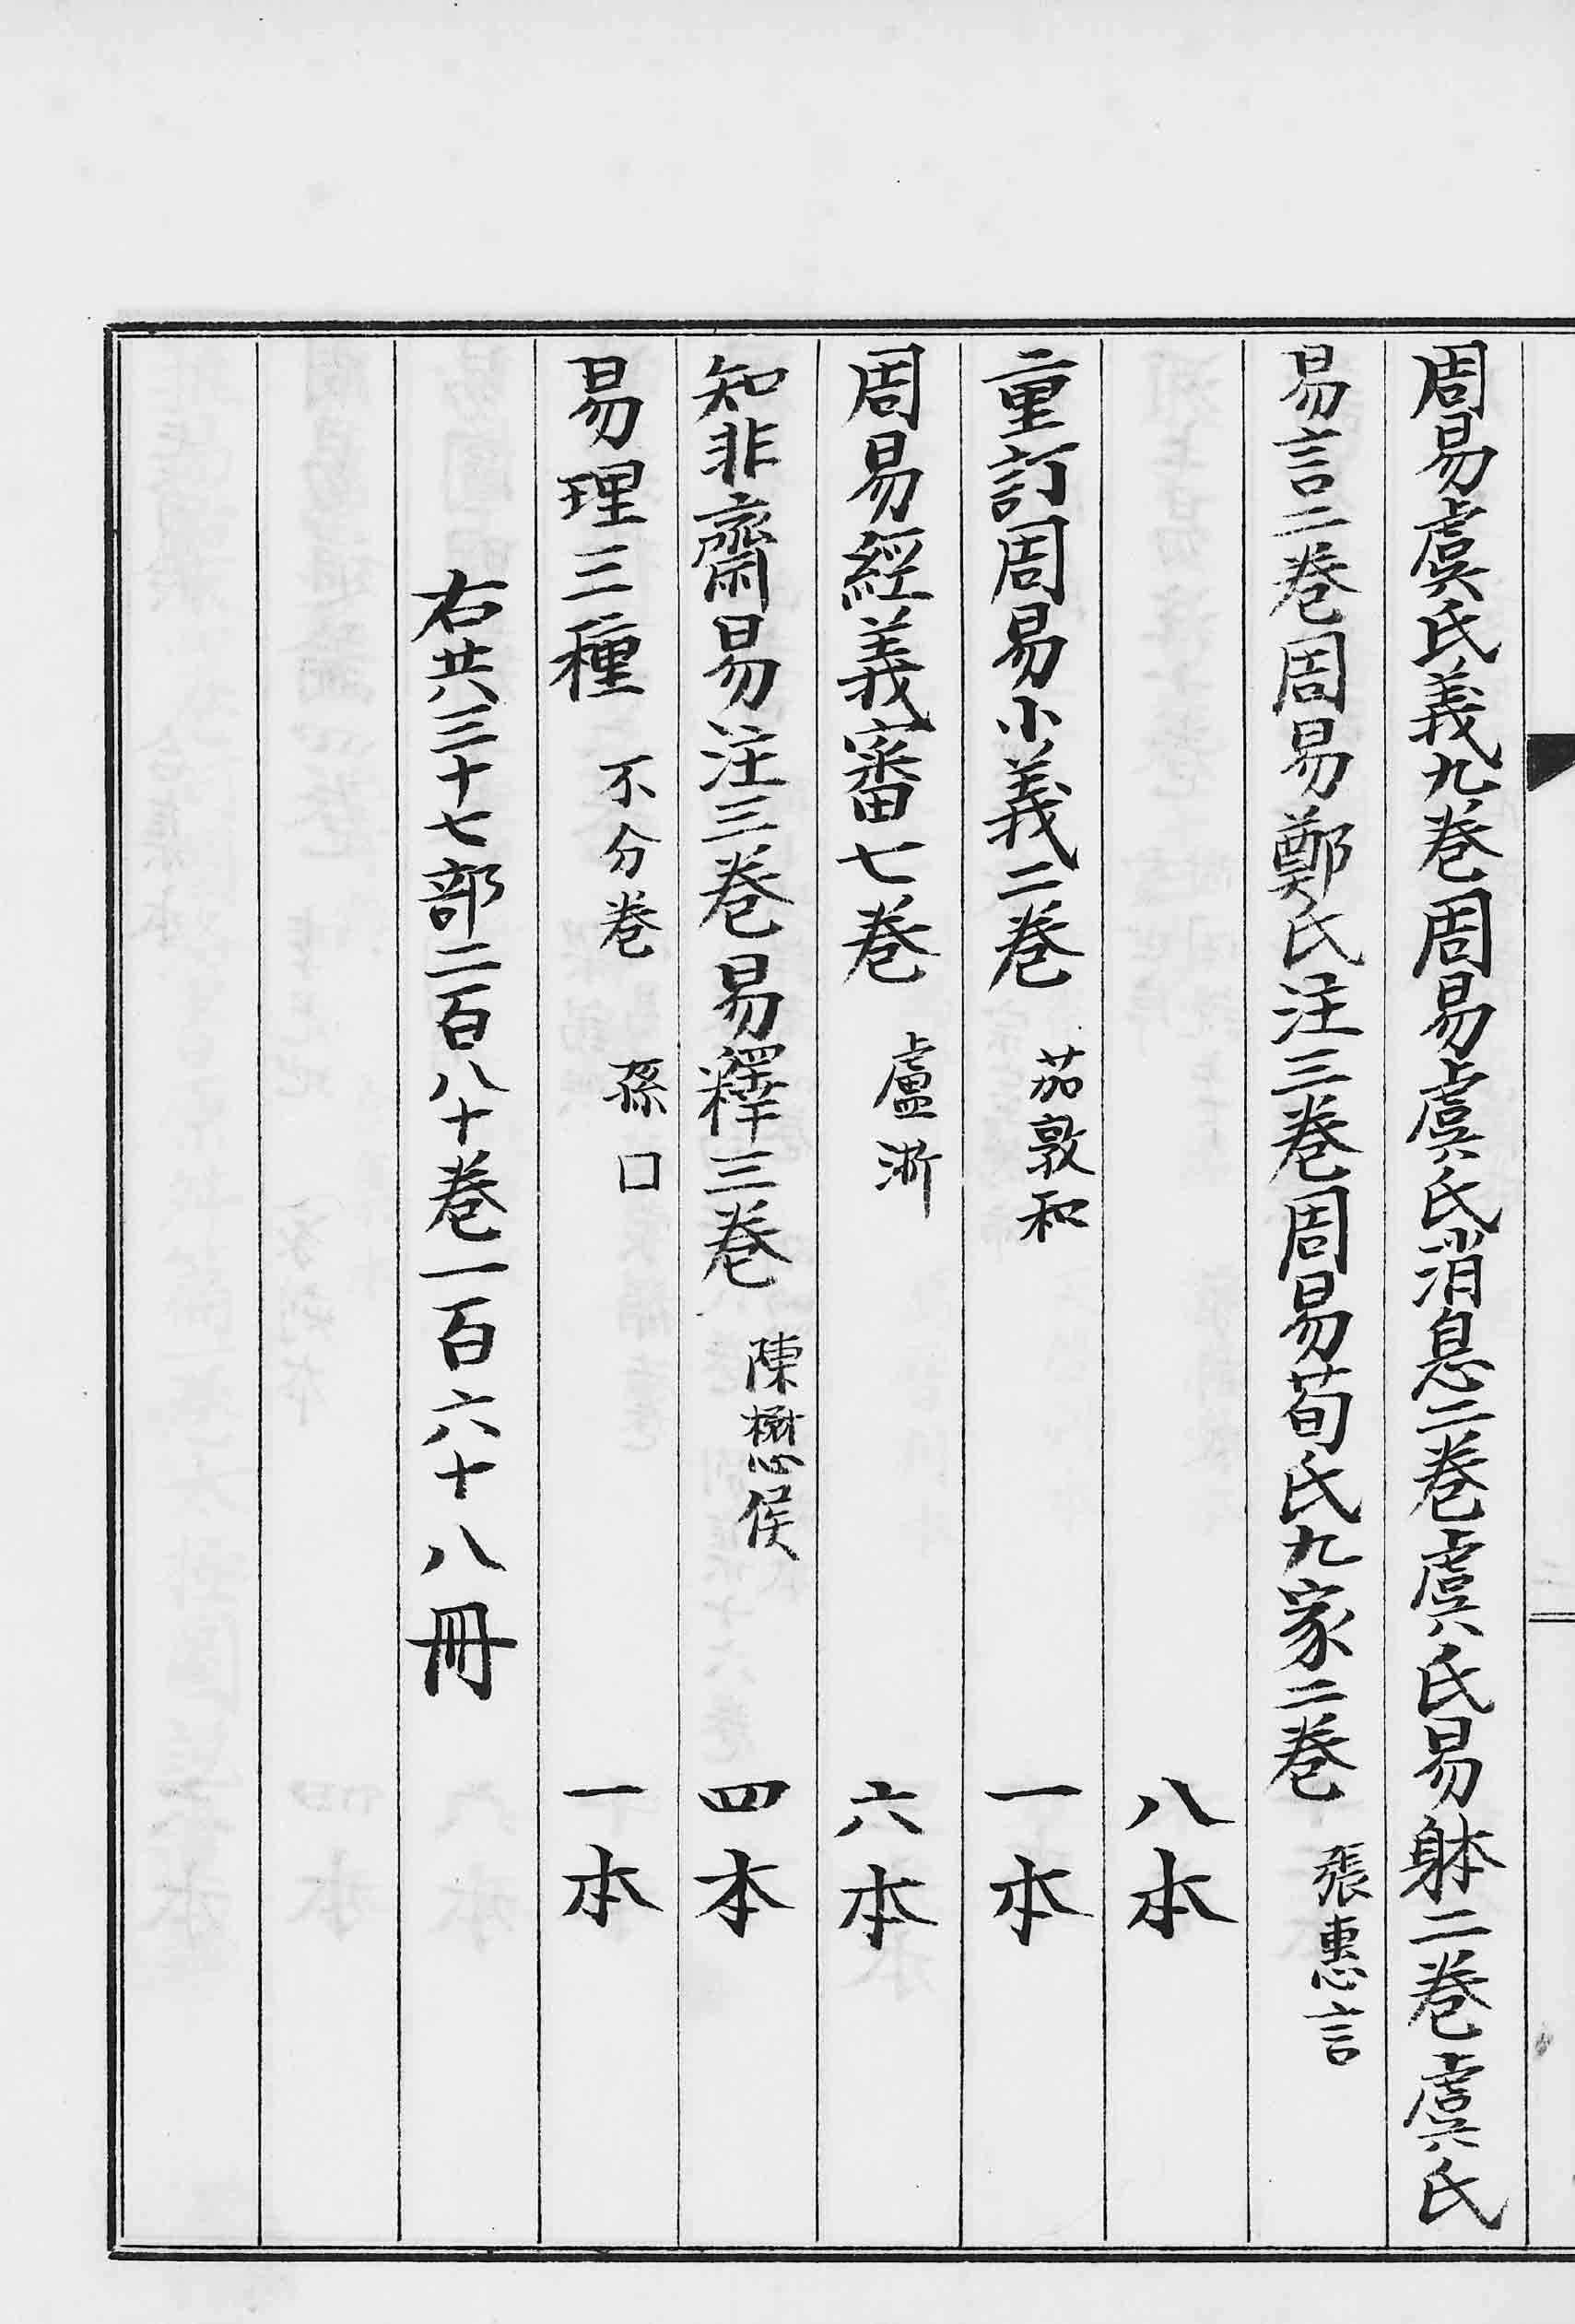 周易虞氏義九卷周易虞氏消息二卷虞氏易躰二卷虞氏
易言二卷周易鄭氏注三卷周易荀氏九家二卷 張惠言
八本
重訂周易小義二卷 茹敦和 一本
周易經義審七卷 盧浙 六本
知非齋易注三卷易釋三卷 陳懋侯 四本
易理三種 不分卷 孫口 一本
右共三十七部二百八十卷一百六十八冊